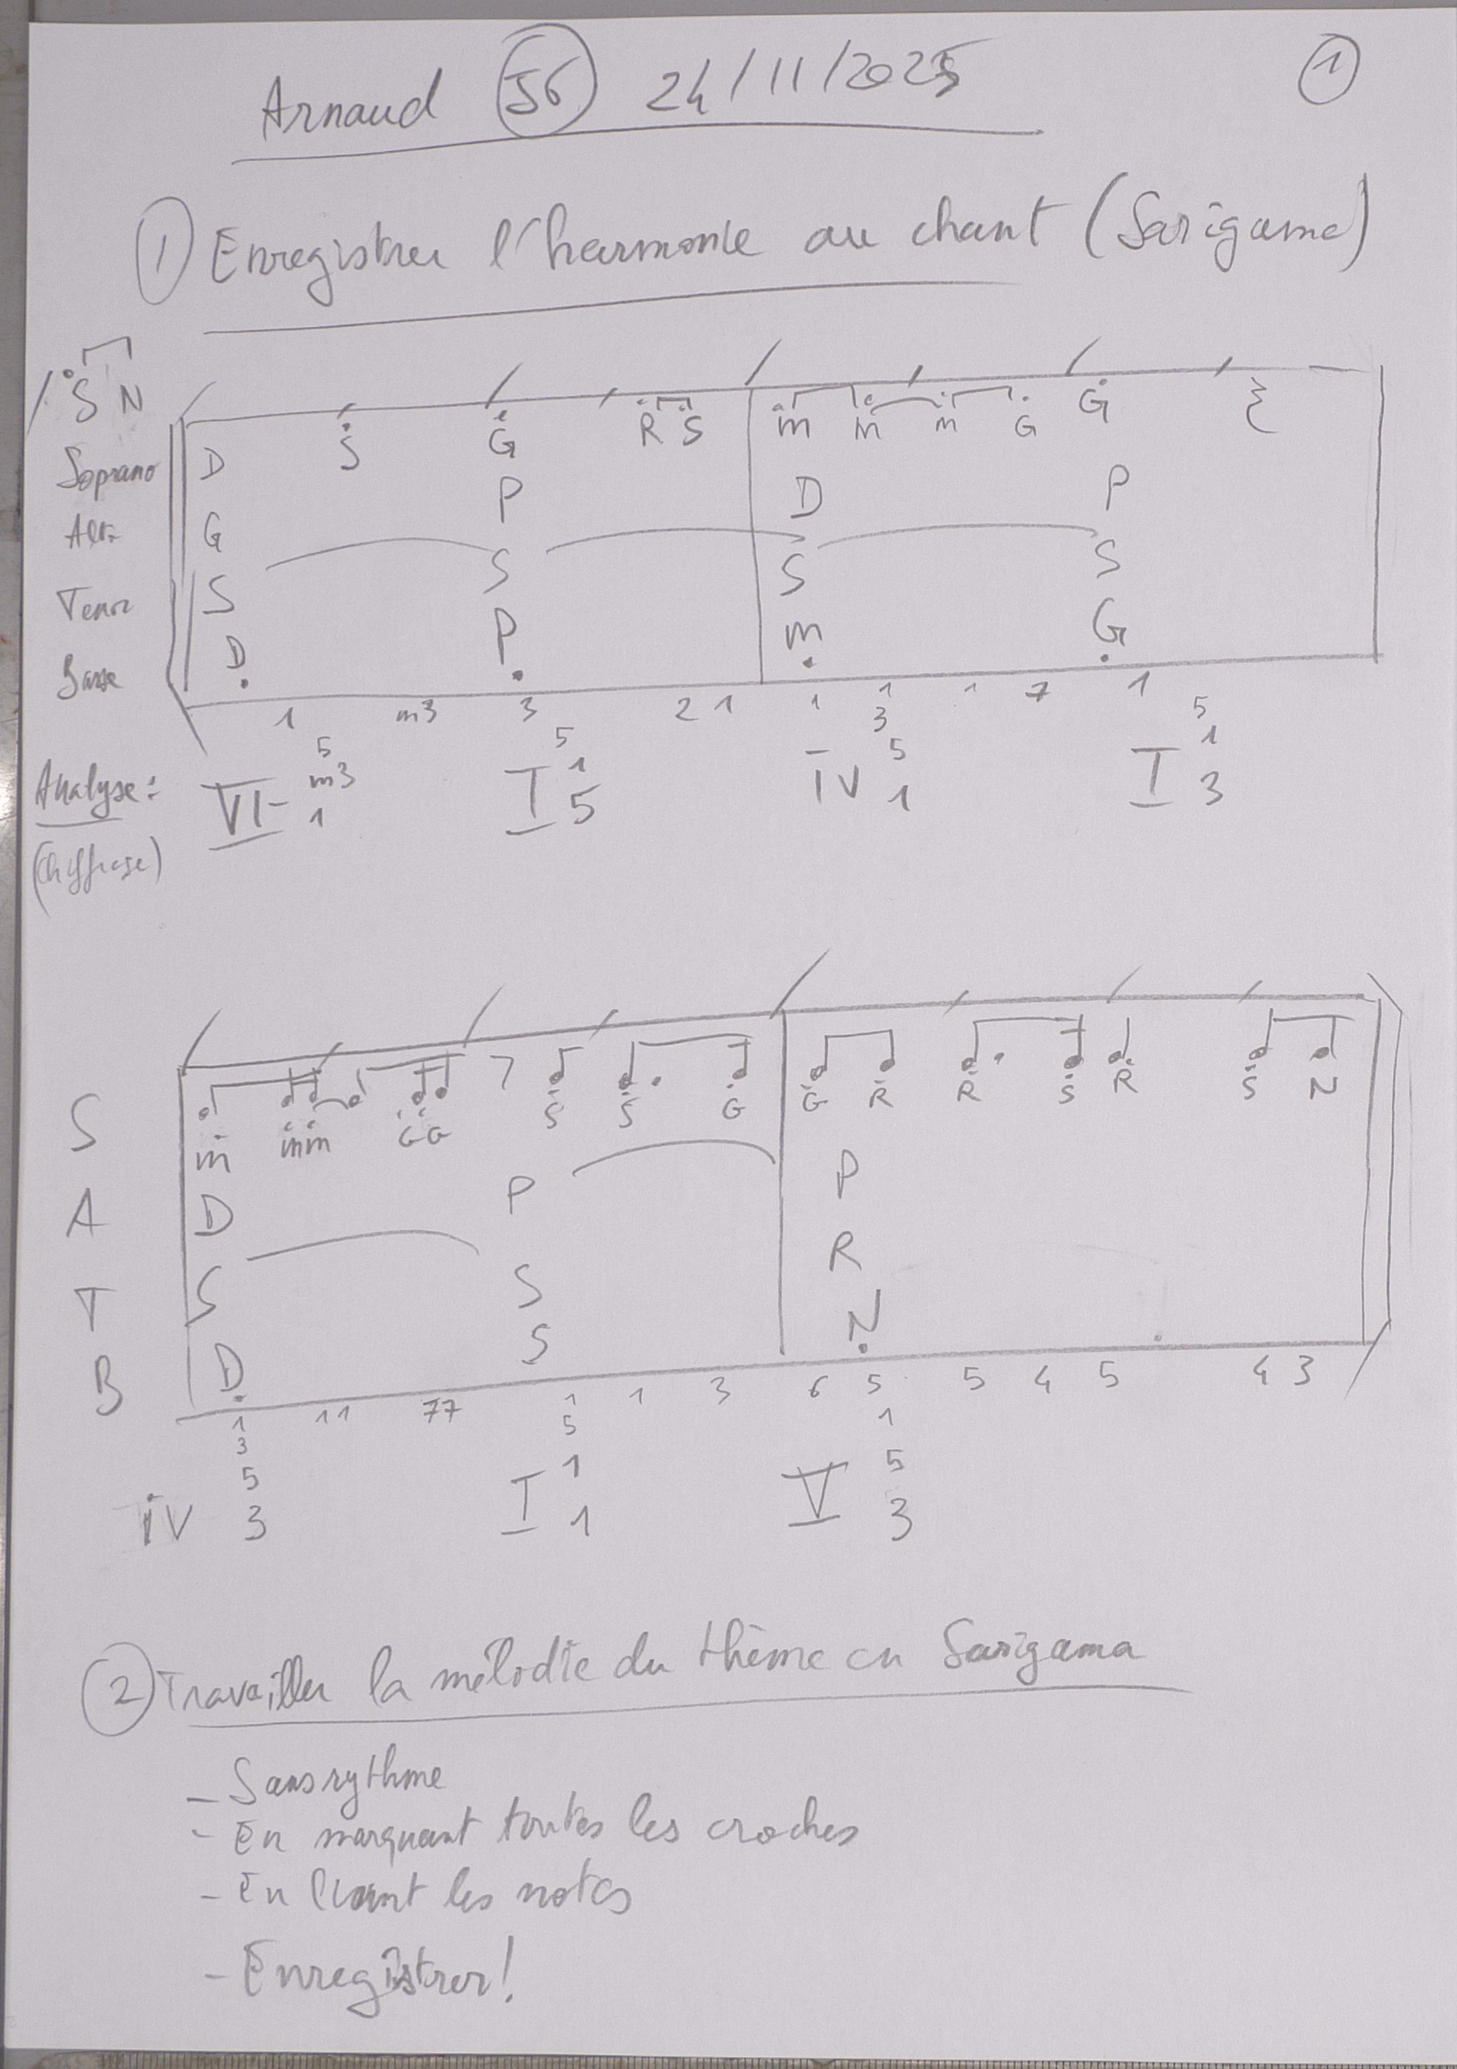 Arnaud 56 24/11/2025 1
1 Enregistrer l'harmonie au chant (Sarigame)
/ S N
Soprano D S G R S m m m G G
Alto G P D P
Tenor S S S S
Basse D P m G
1 m3 3 2 1 1 1 1 7 1
5 5 3 5
m3 1 5 1
Analyse: VI- 1 I 5 IV 1 I 3
(Chiffrage)
S m m m G G S S G G R R S R S N
A D P P
T S S R
B D S N
1 1 1 7 7 1 1 3 6 5 5 4 5 4 3
3 5 1
5 1 5
iv 3 I 1 V 3
2 Travailler la mélodie du thème en Sarigama
- Sans rythme
- En marquant toutes les croches
- En liant les notes
- Enregistrer!